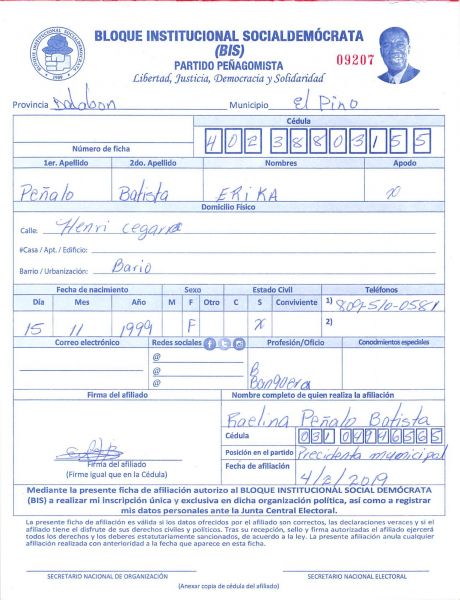 BLOQUE INSTITUCIONAL SOCIALDEMÓCRATA
(BIS)
PARTIDO PEÑAGOMISTA
Libertad, Justicia, Democracia y Solidaridad
09207
Provincia Dalabon Municipio El Pino
Cédula
Número de ficha 402 3880315 5
1er. Apellido 2do. Apellido Nombres Apodo
Peñalo Batista ERIKA x
Domicilio Físico
Calle: Henri cegarra
#Casa / Apt. / Edificio:
Barrio / Urbanización: Bario
Fecha de nacimiento Sexo Estado Civil Teléfonos
Día Mes Año M F Otro C S Conviviente 1) 809-510-0581
15 11 1999 F x 2)
Correo electrónico Redes sociales Profesión/Oficio Conocimientos especiales
@
@ B
@ Banquera
Firma del afiliado Nombre completo de quien realiza la afiliación
Raelina Peñalo Batista
Cédula 031 0474656 5
Posición en el partido Precidenta municipal
Firma del afiliado
(Firme igual que en la Cédula)
Fecha de afiliación 4/2/2019
Mediante la presente ficha de afiliación autorizo al BLOQUE INSTITUCIONAL SOCIAL DEMÓCRATA
(BIS) a realizar mi inscripción única y exclusiva en dicha organización política, así como a registrar
mis datos personales ante la Junta Central Electoral.
La presente ficha de afiliación es válida si los datos ofrecidos por el afiliado son correctos, las declaraciones veraces y si el
afiliado tiene el disfrute de sus derechos civiles y políticos. Tras su recepción, sello y firma autorizadas el afiliado ejercerá
todos los derechos y los deberes estatutariamente sancionados, de acuerdo a la ley. La presente afiliación anula cualquier
afiliación realizada con anterioridad a la fecha que aparece en esta ficha.
SECRETARIO NACIONAL DE ORGANIZACIÓN SECRETARIO NACIONAL ELECTORAL
(Anexar copia de cédula del afiliado)